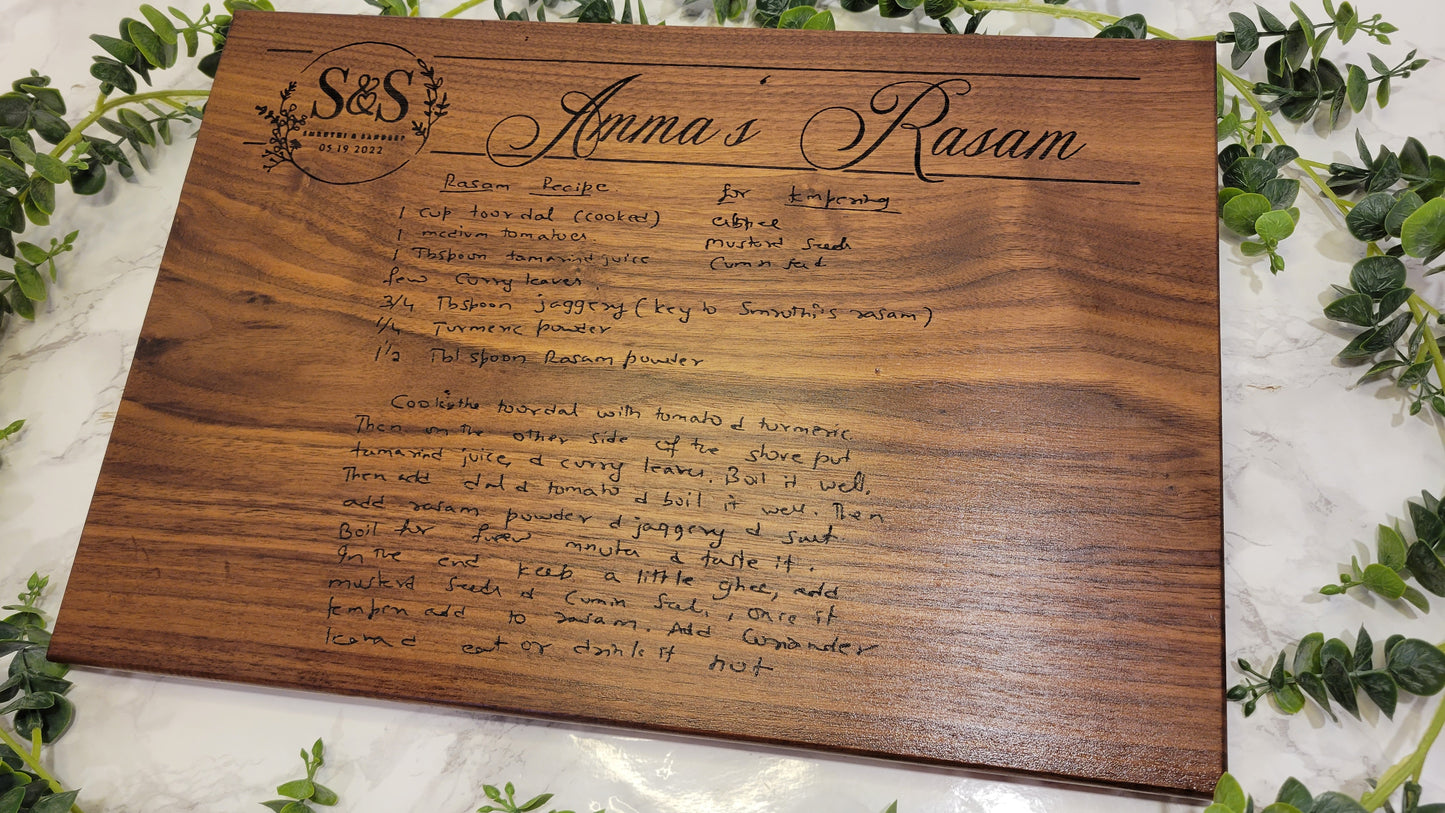 S&S
SMRUTHI & SANDEEP
05 19 2022
Amma's Rasam
Rasam Recipe.
1 cup toordal (cooked)
1 medium tomatoes.
1 Tbspoon tamarind juice
few curry leaves.
3/4 Tbspoon jaggery (key to Smruthi's rasam)
1/4 Turmeric powder
1 1/2 Tbl spoon Rasam powder
for tempering
mustard seeds
Cumin seed
Cook the toordal with tomato & turmeric
Then on the other side of the stove put
tamarind juice, & curry leaves. Boil it well.
Then add dal & tomato & boil it well. Then
add rasam powder & jaggery & salt.
Boil for few minutes & taste it.
In the end keep a little ghee, add
mustard seeds & cumin seeds, once it
tempers add to rasam. Add Coriander
leaves & eat or drink it hot